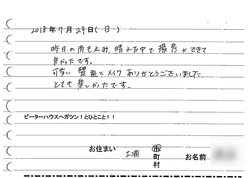 2018年7月29日(日)
昨日の雨も止み、晴れた中で撮影ができて
良かったです。
可愛い髪型とメイクありがとうございました。
とても楽しかったです。
ピーターハウスへガツン!とひとこと!!
お住まい 三浦 市町村 お名前